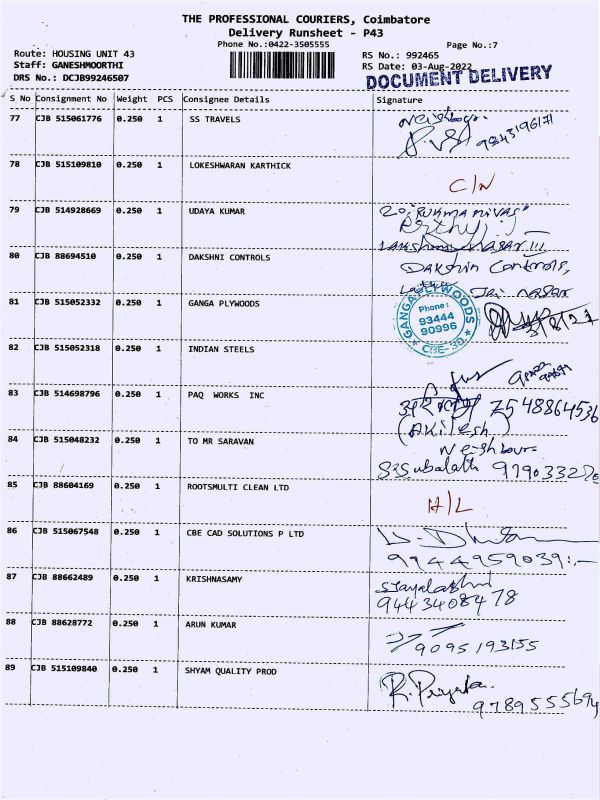 THE PROFESSIONAL COURIERS, Coimbatore
Delivery Runsheet - P43
Phone No.:0422-3505555
Page No.:7
Route: HOUSING UNIT 43
RS No.: 992465
Staff: GANESHMOORTHI
RS Date: 03-Aug-2022
DRS No.: DCJB99246507
DOCUMENT DELIVERY
S No Consignment No Weight PCS Consignee Details Signature
77 CJB 515061776 0.250 1 SS TRAVELS
Neighbour.
9843196171
78 CJB 515109810 0.250 1 LOKESHWARAN KARTHICK
C/N
79 CJB 514928669 0.250 1 UDAYA KUMAR
20, "RUKMA NIVAS"
80 CJB 88694510 0.250 1 DAKSHNI CONTROLS
Dakshin Controls,
Jai nagar
81 CJB 515052332 0.250 1 GANGA PLYWOODS
GANGA PLYWOODS
Phone:
93444
90996
CBE-30.
82 CJB 515052318 0.250 1 INDIAN STEELS
83 CJB 514698796 0.250 1 PAQ WORKS INC
7548864536
(Akilesh)
84 CJB 515048232 0.250 1 TO MR SARAVAN
Neighbour
85 CJB 88604169 0.250 1 ROOTSMULTI CLEAN LTD
H/L
86 CJB 515067548 0.250 1 CBE CAD SOLUTIONS P LTD
9944959039:-
87 CJB 88662489 0.250 1 KRISHNASAMY
9443408478
88 CJB 88628772 0.250 1 ARUN KUMAR
9095193155
89 CJB 515109840 0.250 1 SHYAM QUALITY PROD
R. Priyanka.
9789555694